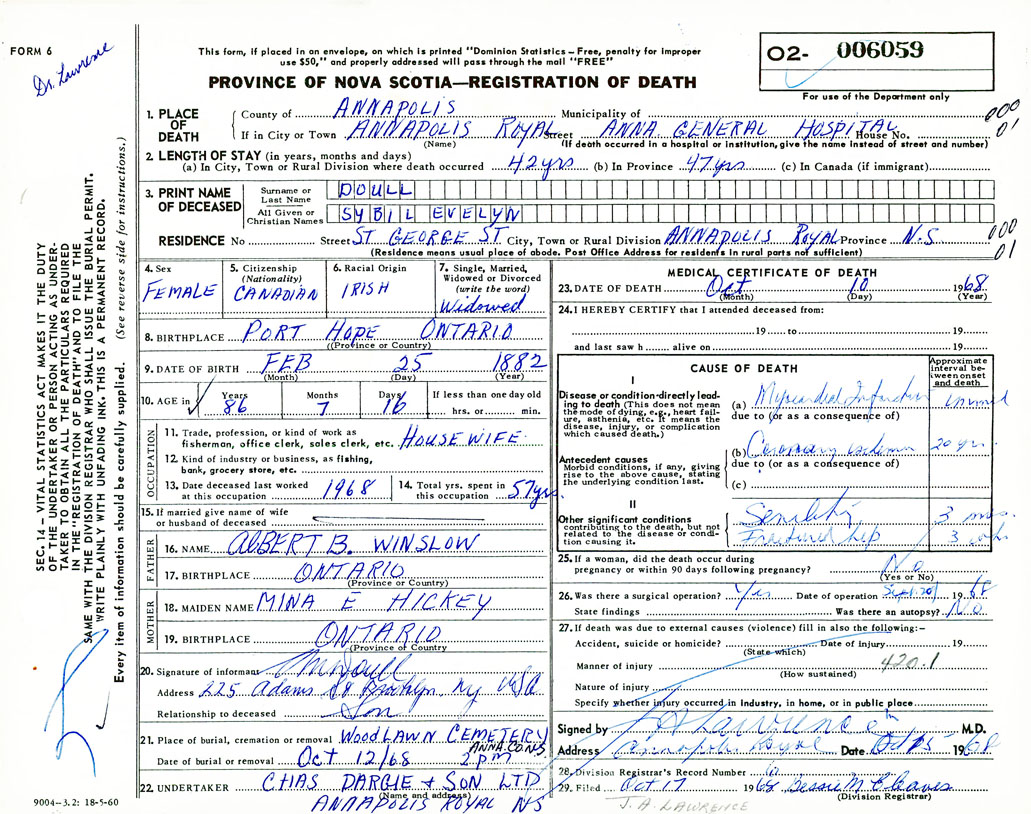 FORM 6
Dr. Lawrence
This form, if placed in an envelope, on which is printed "Dominion Statistics – Free, penalty for improper
use $50," and properly addressed will pass through the mail "FREE"
PROVINCE OF NOVA SCOTIA—REGISTRATION OF DEATH
02- 006059
For use of the Department only
000
01
1. PLACE OF DEATH
County of ANNAPOLIS Municipality of
If in City or Town ANNAPOLIS ROYAL Street ANNA GENERAL HOSPITAL House No.
(Name) (If death occurred in a hospital or institution, give the name instead of street and number)
2. LENGTH OF STAY (in years, months and days)
(a) In City, Town or Rural Division where death occurred 42 yrs (b) In Province 47 yrs (c) In Canada (if immigrant)
3. PRINT NAME OF DECEASED
Surname or Last Name DOULL
All Given or Christian Names SYBIL EVELYN
RESIDENCE No Street ST GEORGE ST City, Town or Rural Division ANNAPOLIS ROYAL Province N.S
(Residence means usual place of abode. Post Office Address for residents in rural parts not sufficient)
000
01
4. Sex
FEMALE
5. Citizenship
(Nationality)
CANADIAN
6. Racial Origin
IRISH
7. Single, Married,
Widowed or Divorced
(write the word)
Widowed
8. BIRTHPLACE PORT HOPE ONTARIO
((Province or Country)
9. DATE OF BIRTH FEB 25 1882
(Month) (Day) (Year)
10. AGE in Years 86 Months 7 Days 16 If less than one day old
hrs. or min.
OCCUPATION
11. Trade, profession, or kind of work as
fisherman, office clerk, sales clerk, etc. HOUSEWIFE
12. Kind of industry or business, as fishing,
bank, grocery store, etc.
13. Date deceased last worked
at this occupation 1968
14. Total yrs. spent in
this occupation 57 yrs
15. If married give name of wife
or husband of deceased
FATHER
16. NAME ALBERT B. WINSLOW
17. BIRTHPLACE ONTARIO
(Province or Country)
MOTHER
18. MAIDEN NAME MINA E HICKEY
19. BIRTHPLACE ONTARIO
(Province or Country
20. Signature of informant Doull
Address 225 Adams St Brooklyn Ny USA
Relationship to deceased Son
21. Place of burial, cremation or removal WOODLAWN CEMETERY
ANNA.CO.NS
Date of burial or removal Oct 12/68 2 PM
22. UNDERTAKER CHAS DARGIE + SON LTD
(Name and address)
ANNAPOLIS ROYAL NS
MEDICAL CERTIFICATE OF DEATH
23. DATE OF DEATH Oct 10 1968
(Month) (Day) (Year)
24. I HEREBY CERTIFY that I attended deceased from:
19 to 19
and last saw h alive on 19
CAUSE OF DEATH
Approximate
interval be-
tween onset
and death
I
Disease or condition directly lead-
ing to death (This does not mean
the mode of dying, e.g., heart fail-
ure, asthenia, etc. It means the
disease, injury, or complication
which caused death.)
(a) Myocardial Infarction
due to (or as a consequence of)
Antecedent causes
Morbid conditions, if any, giving
rise to the above cause, stating
the underlying condition last.
(b) Coronary 20 yrs.
due to (or as a consequence of)
(c)
II
Other significant conditions
contributing to the death, but not
related to the disease or condi-
tion causing it.
Senility 3 mos.
Fractured hip 3 wks
25. If a woman, did the death occur during
pregnancy or within 90 days following pregnancy? No
(Yes or No)
26. Was there a surgical operation? Yes Date of operation Sept 20 1968
State findings Was there an autopsy? No
27. If death was due to external causes (violence) fill in also the following:–
Accident, suicide or homicide? Date of injury 19
(State which)
Manner of injury 420.1
(How sustained)
Nature of injury
Specify whether injury occurred in industry, in home, or in public place
Signed by Lawrence M.D.
Address Annapolis Royal Date Oct 15 1968
28. Division Registrar's Record Number
29. Filed Oct 17 1968 Bessie M Cleaves
(Division Registrar)
J. A. LAWRENCE
SEC. 14 – VITAL STATISTICS ACT MAKES IT THE DUTY
OF THE UNDERTAKER OR PERSON ACTING AS UNDER-
TAKER TO OBTAIN ALL THE PARTICULARS REQUIRED
IN THE "REGISTRATION OF DEATH" AND TO FILE THE
SAME WITH THE DIVISION REGISTRAR WHO SHALL ISSUE THE BURIAL PERMIT.
WRITE PLAINLY WITH UNFADING INK. THIS IS A PERMANENT RECORD.
Every item of information should be carefully supplied. (See reverse side for instructions.)
9004–3.2: 18-5-60